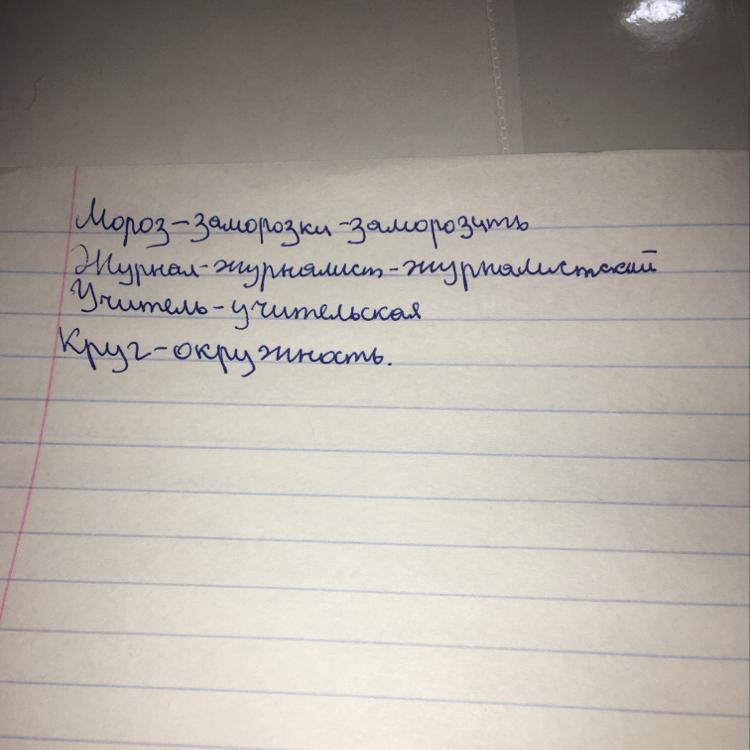 Мороз-заморозки-заморозить
Журнал-журналист-журналистский
Учитель-учительская
Круг-окружность.